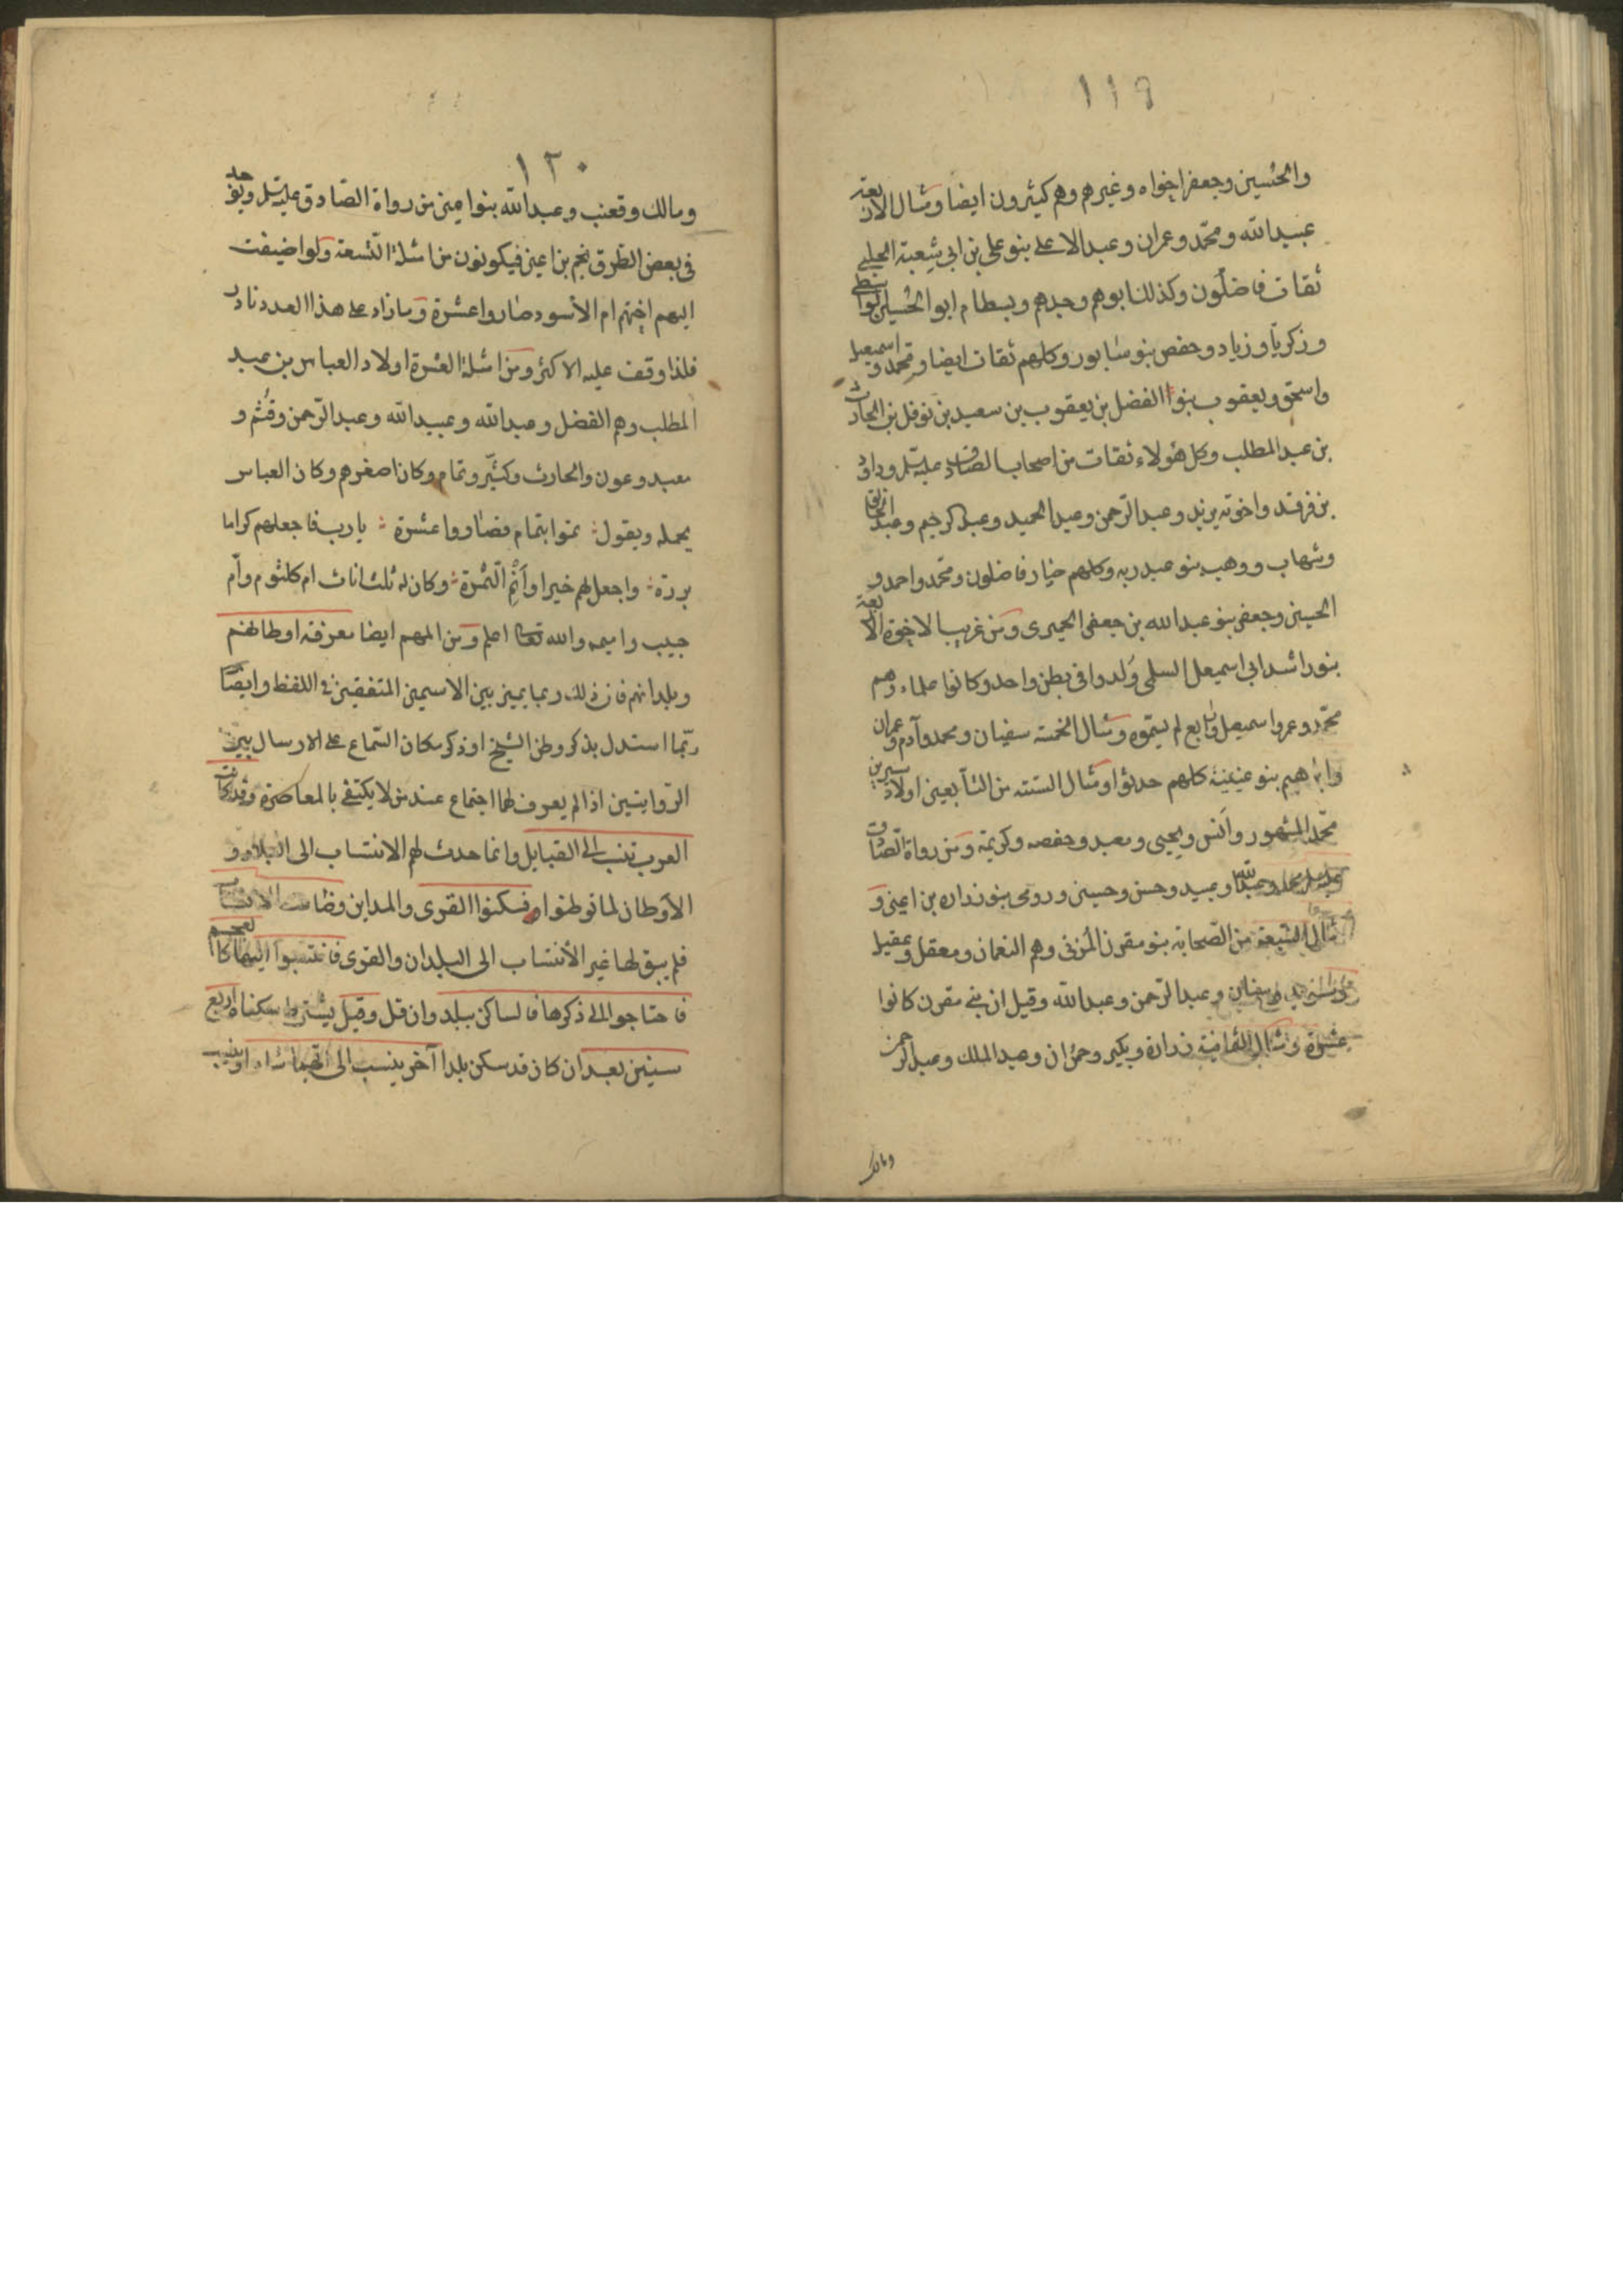 ١١٩
والحسين وجعفر اخواه وغيرهم وهم كثيرون ايضا ومثال الاربعة
عبيدالله ومحمّد وعمران وعبدالاعلى بنو على بن ابي شعبة الحلبى
ثقات فاضلون وكذلك ابوهم وجدهم وبسطام ابو الحسين الواسطى
وزكريّا وزياد وحفص بنو سابور وكلهم ثقات ايضا ومحمد واسمعيل
واسحق ويعقوب بنوا الفضل بن يعقوب بن سعيد بن نوفل بن الحارث
بن عبد المطلب وكل هؤلاء ثقات من اصحاب الصادق عليه السلم وداود
بن فرقد واخوته يزيد وعبد الرّحمن وعبد الحميد وعبد الرحيم وعبد الخالق
وشهاب ووهب بنو عبد ربه وكلهم خيار فاضلون ومحمّد واحمد و
الحسين وجعفر بنو عبد الله بن جعفر الحميرى ومن غريب الاخوة الاربعة
بنو راشد ابى اسمعيل السلمى وُلدوا فى بطن واحد وكانوا علماء وهم
محمّد وعمر واسمعيل ورابع لم يسمّوه ومثال الخمسة سفيان ومحمد وآدم وعمران
وابراهيم بنو عيينة كلهم حدثوا ومثال الستة من التّابعين اولاد سيرين
محمّد المشهور وأنس ويحيى ومعبد وحفصه وكريمة ومن رواة الصّادق
عليه السلم محمد وعبدالله وعبيد وحسن وحسين ورومى بنو زرارة بن اعين و
مثال السّبعة من الصّحابة بنو مقرن المُزنى وهم النعمان ومعقل وعقيل
وسويد وسنان وعبد الرّحمن وعبدالله وقيل ان بنى مقرن كانوا
عشرة ومثال الثّمانية زرارة وبكير وحمران وعبد الملك وعبد الرحمن
ومالك
١٢٠
ومالك وقعنب وعبدالله بنوا اعين من رواة الصّادق عليه السلم ويوجد
فى بعض الطّرق نجم بن اعين فيكونون من امثلة التّسعة ولو اضيفت
اليهم اختهم ام الأسود صاروا عشرة وما زاد على هذا العدد نادر
فلذا وقف عليه الاكثر ومن امثلة العشرة اولاد العباس بن عبد
المطلب وهم الفضل وعبدالله وعبيدالله وعبد الرّحمن وقُثم و
معبد وعون والحارث وكثيّر وتمام وكان اصغرهم وكان العباس
يحمله ويقول تموا بتمام فصاروا عشرة يا رب فاجعلهم كراما
بررة واجعل لهم خيرا وأنمِ الثّمرة وكان له ثلث اناث ام كلثوم وأم
حبيب واميمه والله تعالى اعلم ومن المهم ايضا معرفة اوطانهم
وبلدانهم فان ذلك ربما يميز بين الاسمين المتفقين فى اللفظ وايضا
ربّما استدل بذكر وطن الشّيخ او ذكر مكان السّماع على الارسال بين
الرّوايتين اذا لم يعرف لهما اجتماع عند من لا يكتفى بالمعاصرة وقد كانت
العرب تنسب الى القبايل وانما حدث لهم الانتساب الى البلاد و
الأوطان لما توطنوا فسكنوا القرى والمداين وضاعت الانساب
فلم يبق لها غير الأنتساب الى البلدان والقرى فانتسبوا اليها كالعجم
فاحتاجوا الى ذكرها فالساكن ببلد وان قل وقيل يشترط سكناه اربع
سنين بعد ان كان قد سكن بلدا آخر ينسب الى ايّهما شاء او ينسب